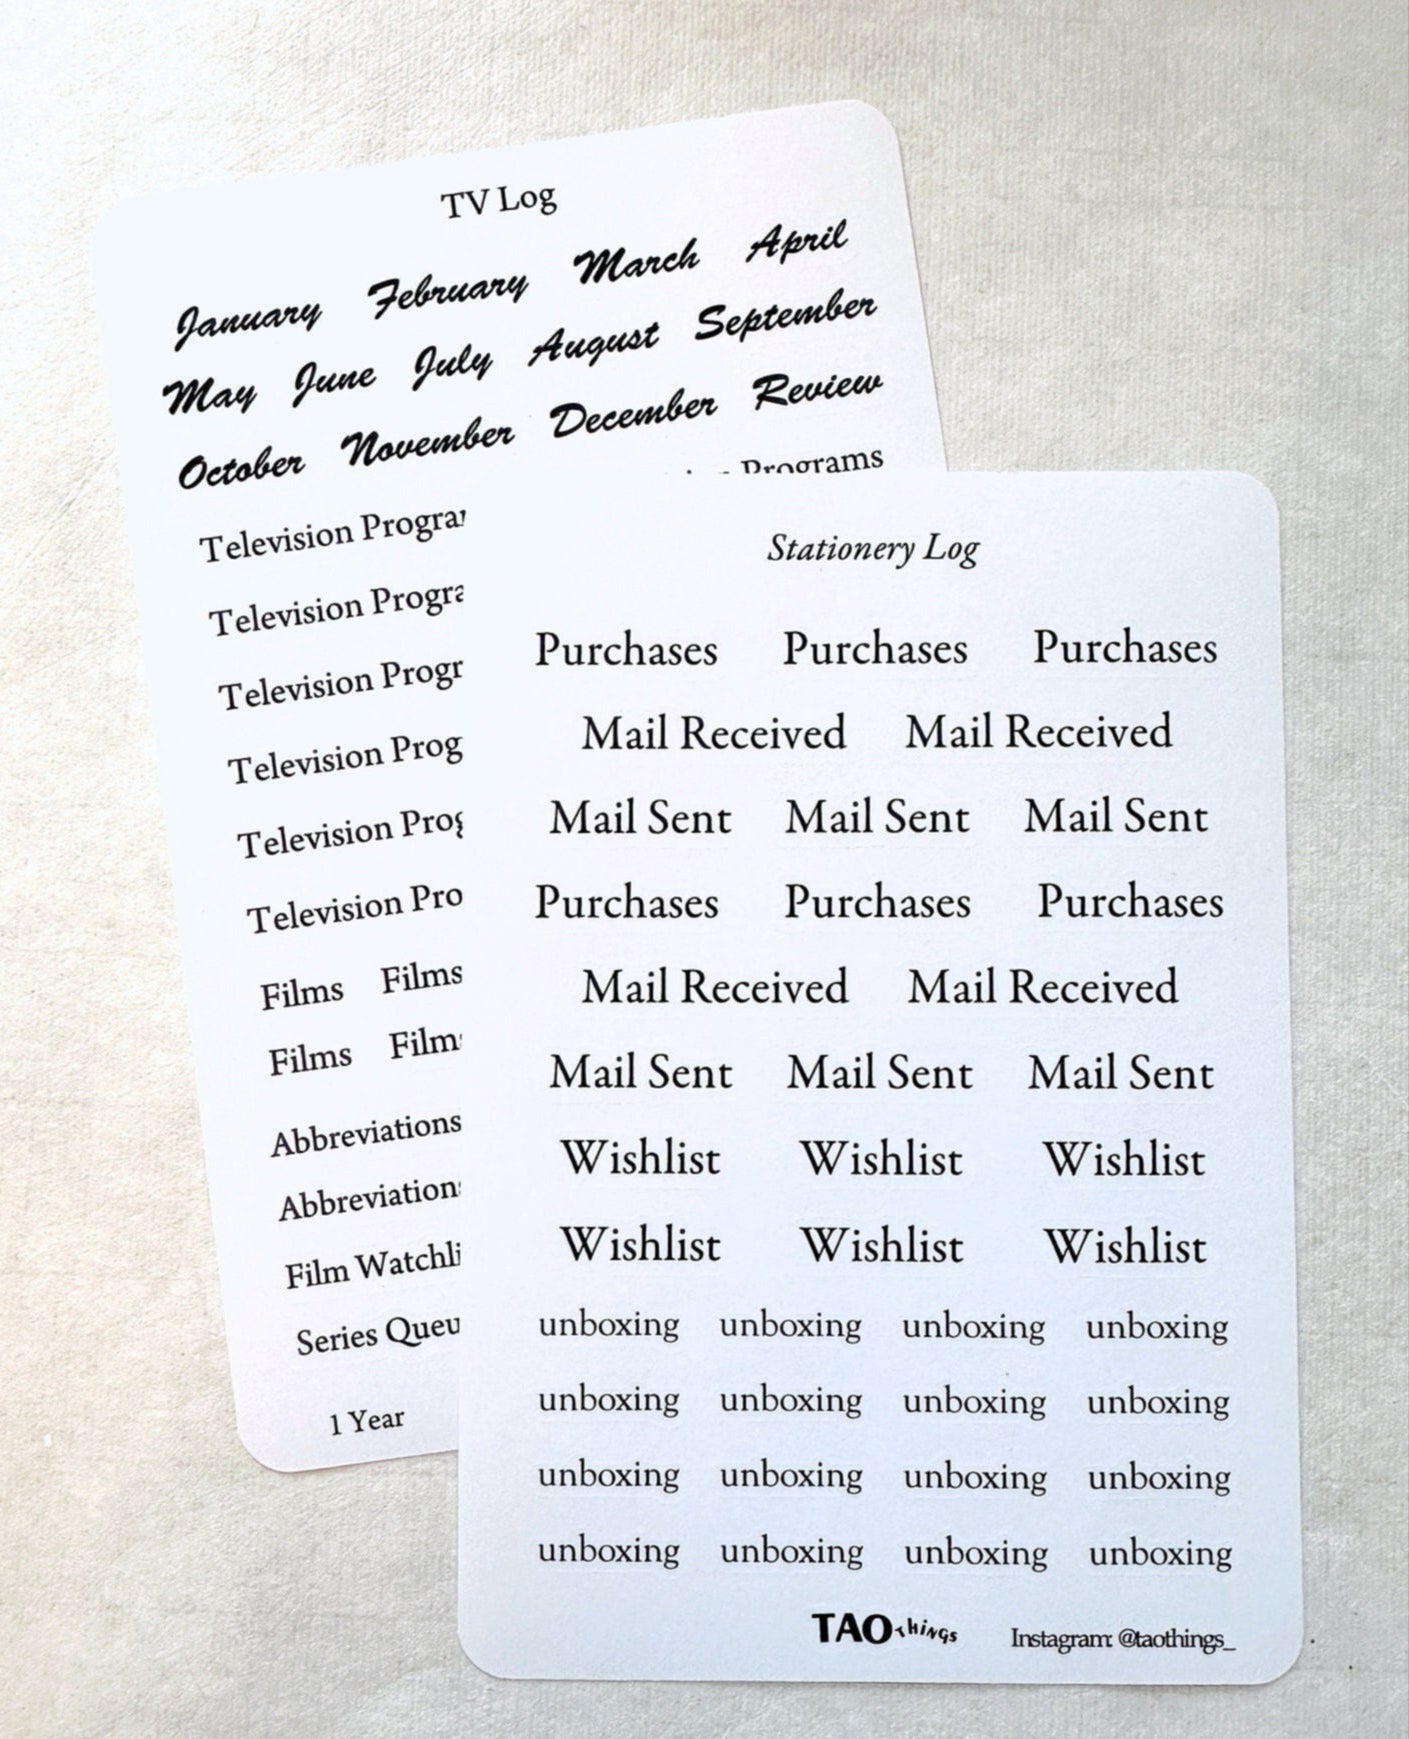 TV Log
January February March April
May June July August September
October November December Review
Programs
Television
Television
Television
Television
Television
Television
Films Films
Films
Abbreviations
Film
Series
1 Year
Stationery Log
Purchases Purchases Purchases
Mail Received Mail Received
Mail Sent Mail Sent Mail Sent
Purchases Purchases Purchases
Mail Received Mail Received
Mail Sent Mail Sent Mail Sent
Wishlist Wishlist Wishlist
Wishlist Wishlist Wishlist
unboxing unboxing unboxing unboxing
unboxing unboxing unboxing unboxing
unboxing unboxing unboxing unboxing
unboxing unboxing unboxing unboxing
TAOTHiNGS Instagram: @taothings_